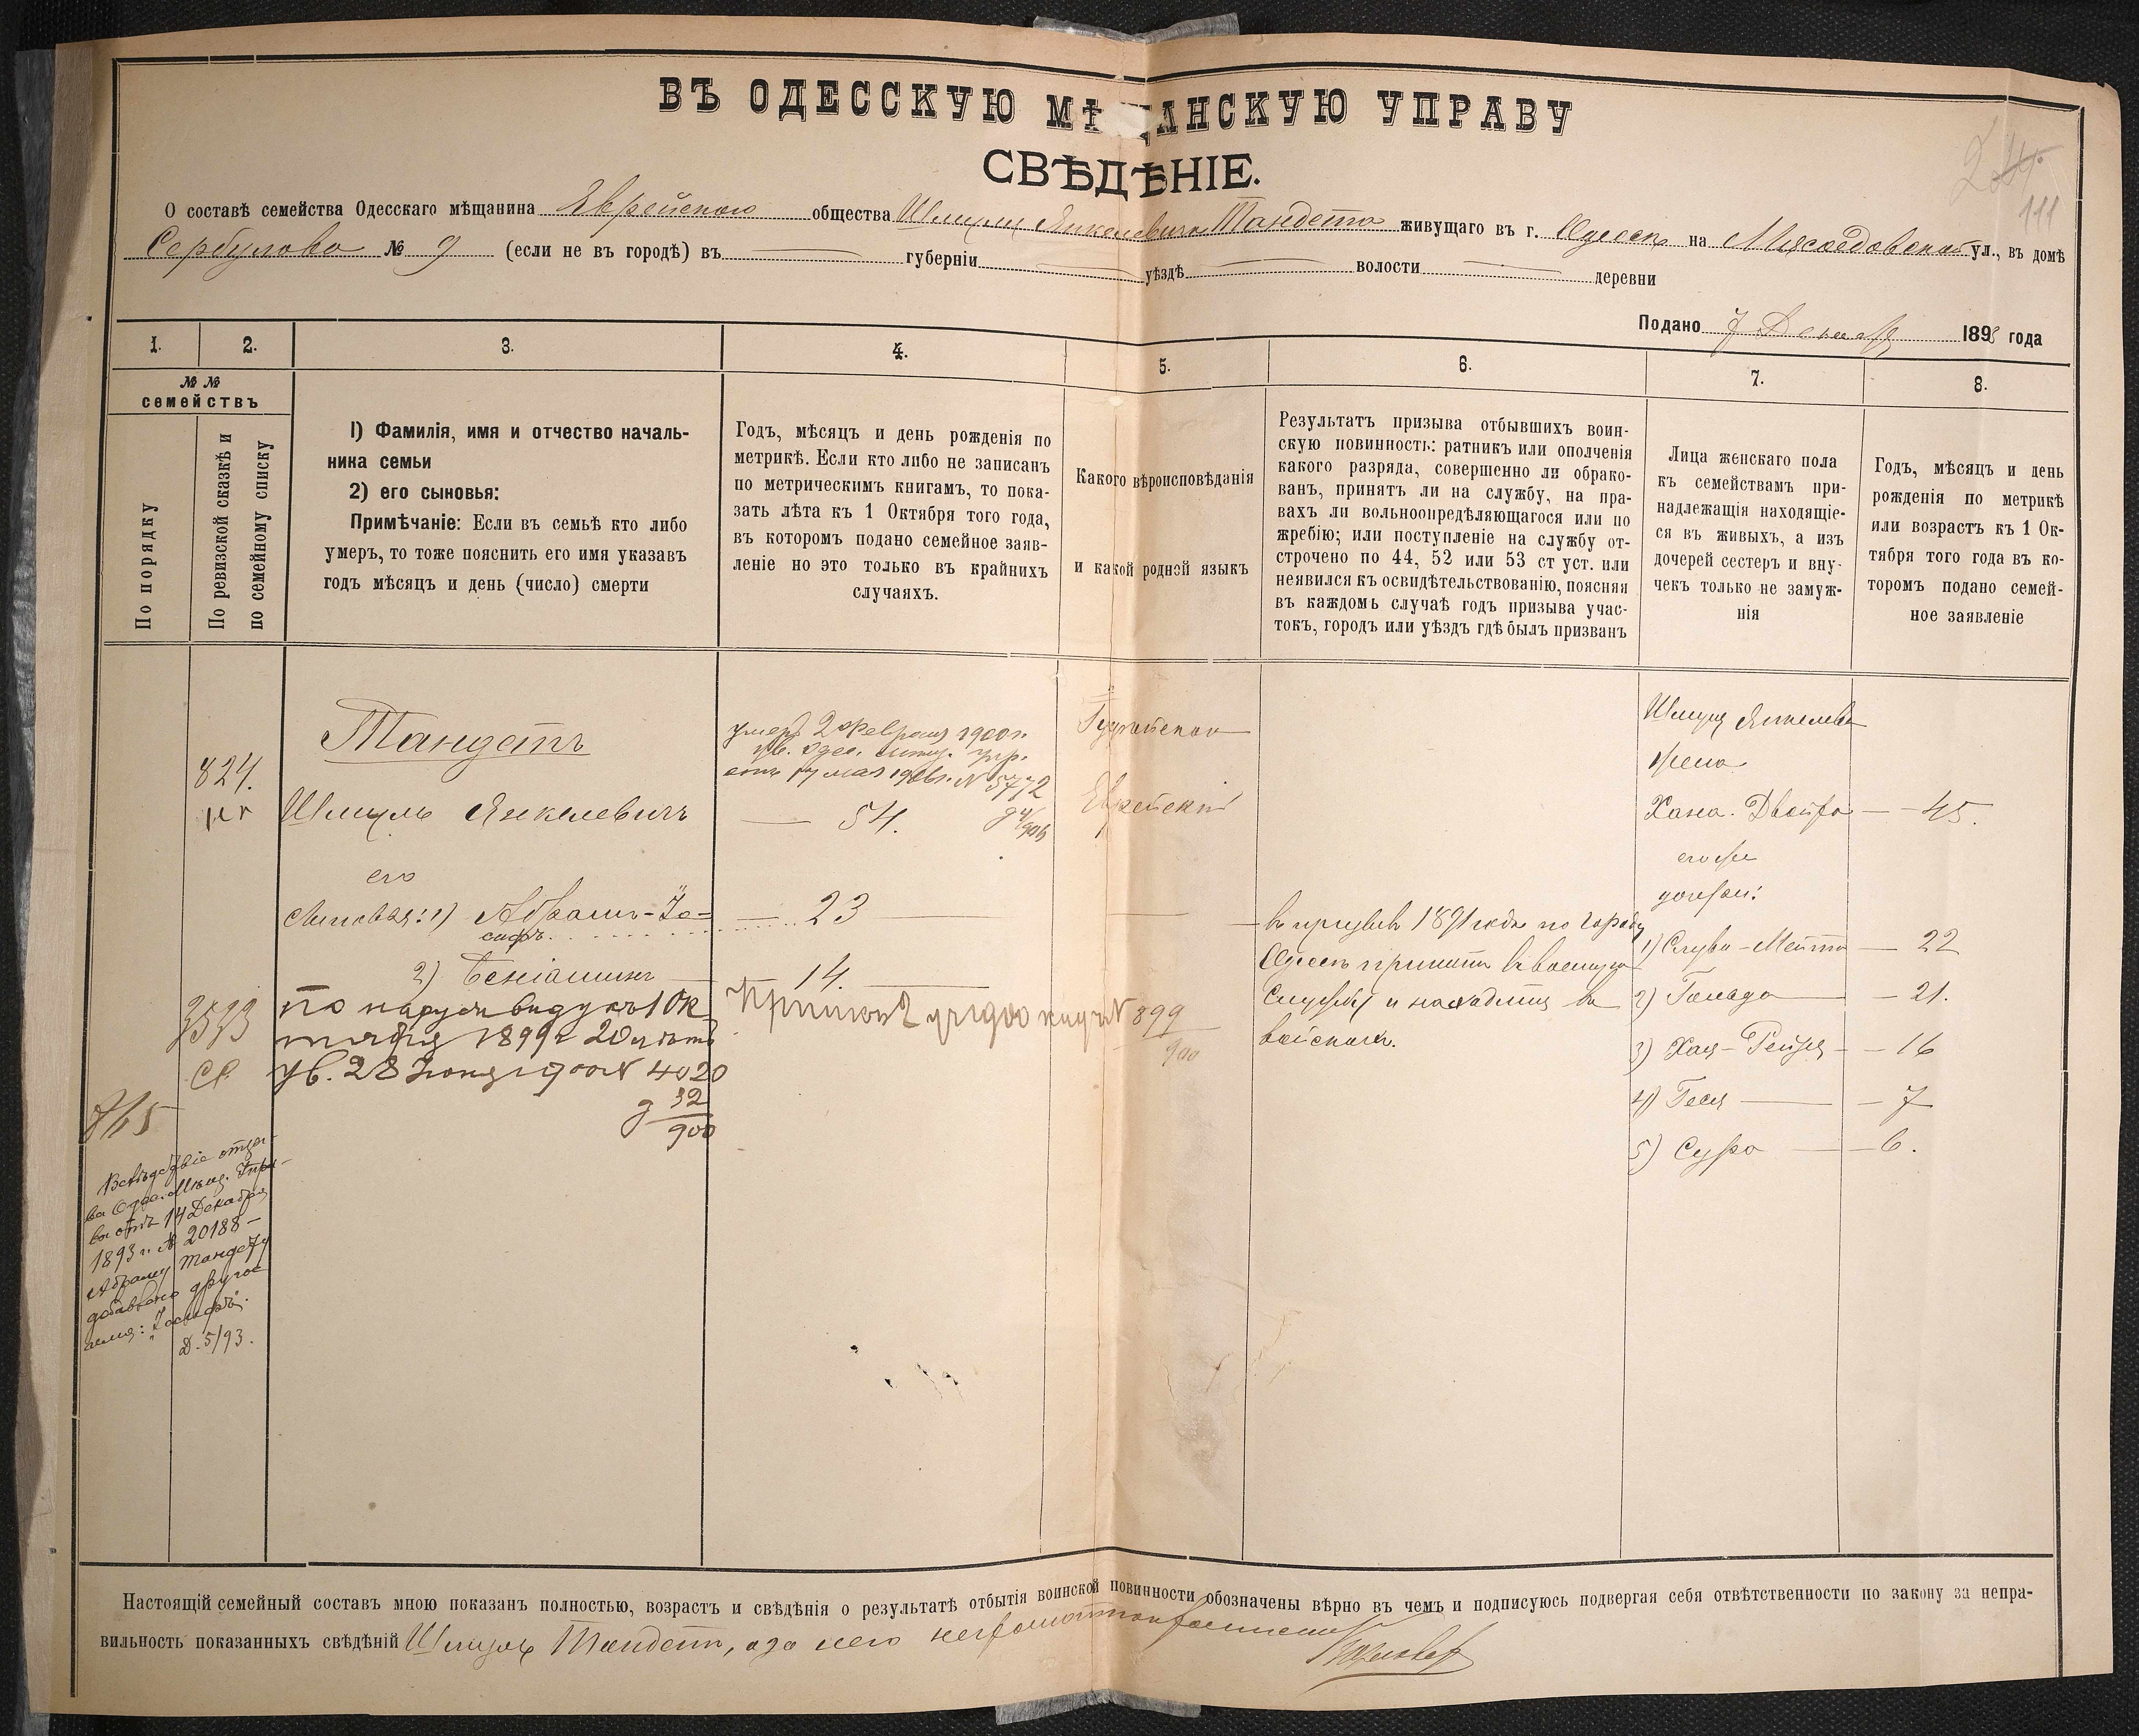 ВЪ ОДЕССКУЮ МѢЩАНСКУЮ УПРАВУ
СВѢДѢНІЕ.
111
О составѣ семейства Одесскаго мѣщанина Еврейскаго общества Шмуля Янкелевича Тандета живущаго въ г. Одессѣ на Мясоѣдовской ул., въ домѣ
Сербулова № 9 (если не въ городѣ) въ губерніи уѣздѣ волости деревни
Подано 7 Декабря 1893 года
1.
2.
3.
4.
5.
6.
7.
8.
№ №
семействъ
По порядку
По ревизской сказкѣ и
по семейному списку
1) Фамилія, имя и отчество началь-
ника семьи
2) его сыновья:
Примѣчаніе: Если въ семьѣ кто либо
умеръ, то тоже пояснить его имя указавъ
годъ мѣсяцъ и день (число) смерти
Годъ, мѣсяцъ и день рожденія по
метрикѣ. Если кто либо не записанъ
по метрическимъ книгамъ, то пока-
зать лѣта къ 1 Октября того года,
въ которомъ подано семейное заяв-
леніе но это только въ крайнихъ
случаяхъ.
Какого вѣроисповѣданія
и какой родной языкъ
Результатъ призыва отбывшихъ воин-
скую повинность: ратникъ или ополченія
какого разряда, совершенно ли обрако-
ванъ, принятъ ли на службу, на пра-
вахъ ли вольноопредѣляющагося или по
жребію; или поступленіе на службу от-
строчено по 44, 52 или 53 ст уст. или
неявился къ освидѣтельствованію, поясняя
въ каждомъ случаѣ годъ призыва учас-
токъ, городъ или уѣздъ гдѣ былъ призванъ
Лица женскаго пола
къ семействамъ при-
надлежащія находящіе-
ся въ живыхъ, а изъ
дочерей сестеръ и вну-
чекъ только не замуж-
нія
Годъ, мѣсяцъ и день
рожденія по метрикѣ
или возрастъ къ 1 Ок-
тября того года въ ко-
торомъ подано семей-
ное заявленіе
Тандетъ
824.
Шмуль Янкелевичъ
его
Сыновья: 1) Абрамъ-Іо-
сифъ
2) Беніаминъ
По наружн виду къ 1 Ок
тября 1899 г 20 лѣтъ
ув. 28 Іюня 1900 № 4020
д 32
900
3593
765
Вслѣдствіе отзы-
ва Одес. Мѣщ. Упра-
вы отъ 14 Декабря
1893 г. № 20188 –
Абраму Тандету
добавлено другое
имя: „Іосифъ“.
Д. 5/93.
умеръ 2 Февраля 1900 г.
ув. Одес. упр.
отъ 17 мая 1906 г. № 5772
54.
23
14.
1900 № 899
900
Іудейская
Еврейскій
въ призывъ 1891 года по городу
Одессѣ принятъ въ военную
Службу и находится въ
войскахъ.
Шмуля Янкелева
жена
Хана-Двойра — 45.
его же
дочери:
1) Слува-Мейта — 22
2) Голада — 21.
3) Хая-Рейзя — 16
4) Геся — 7
5) Сура — 6.
Настоящій семейный составъ мною показанъ полностью, возрастъ и свѣдѣнія о результатѣ отбытія воинской повинности обозначены вѣрно въ чемъ и подписуюсь подвергая себя отвѣтственности по закону за непра-
вильность показанныхъ свѣдѣній Шмуль Тандетъ, а за него неграмотнаго росписался